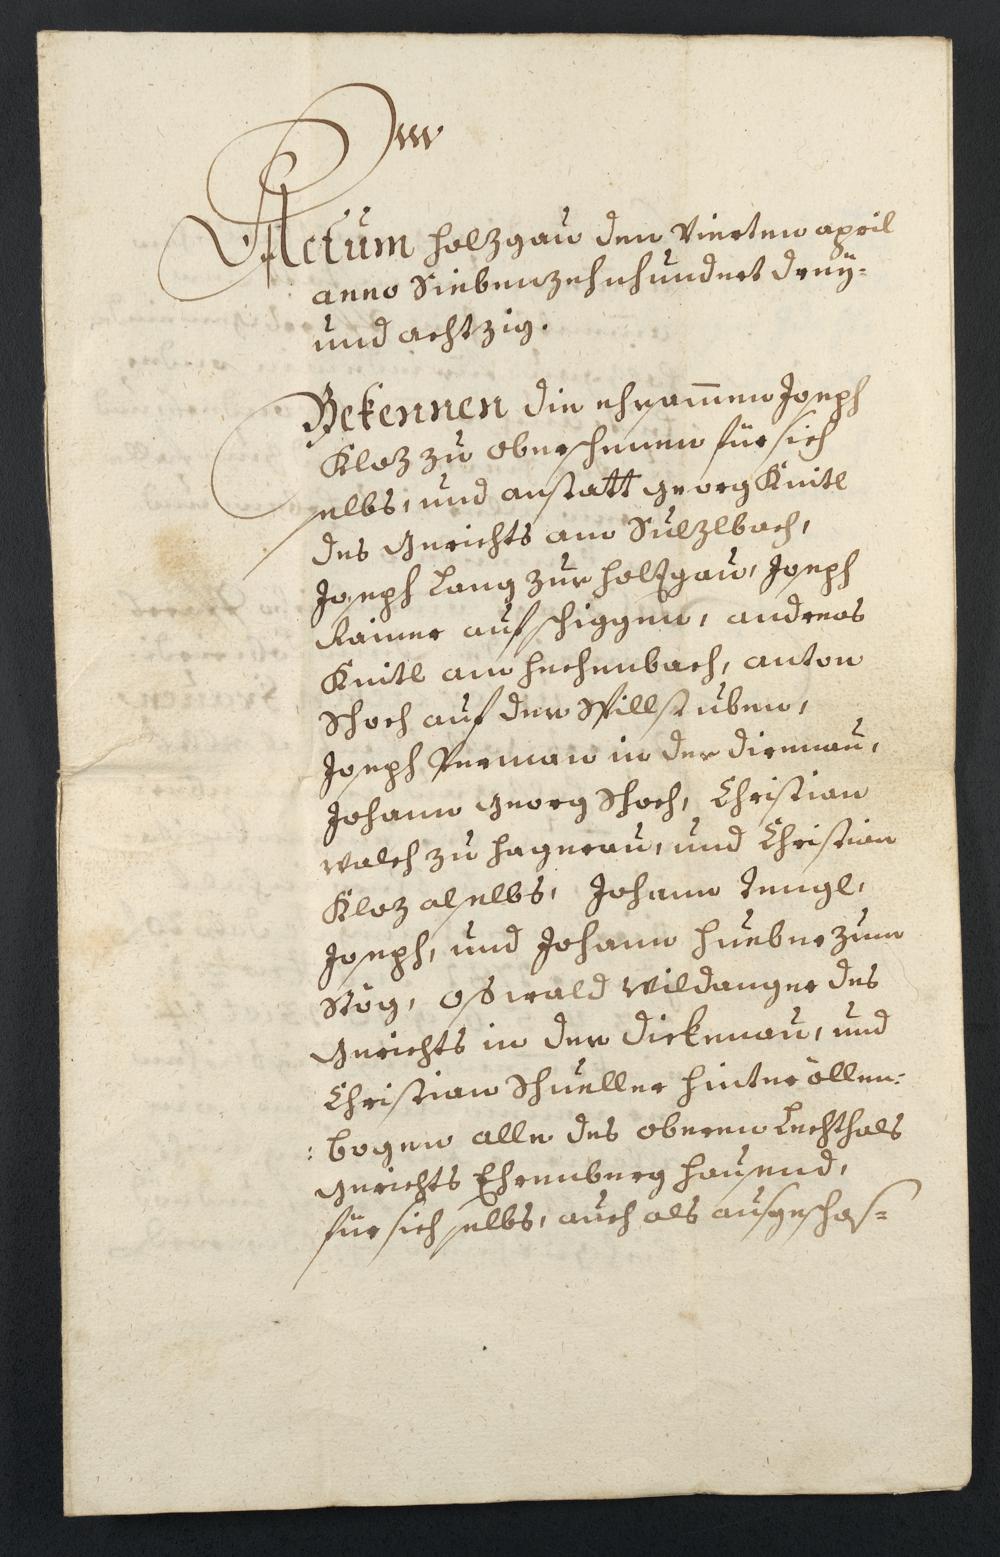 Actum Holzgau den Vierten april
anno Siebenzehnhundert dreÿ-
und achtzig.
Bekennen die ehrsam̅en Joseph
Kloz zu Oberschenen für sich
selbs, und anstatt Georg Knitl
des Gerichts am Sulzlbach,
Joseph Lang zur Holzgau, Joseph
Rainer auf schiggen, andreas
Knitl am Hechenbach, anton
Schoch auf der Stillstuben,
Joseph Perman in der
Johann Georg Schoch, Christian
Walch zu Hagerau, und Christian
Kloz alselbs, Johann Zengl,
Joseph, und Johann Hueber zum
Stög, Oswald Wildanger des
Gerichts in der Dickenau, und
Christian Schueller hinter öllen-
:bogen alle des oberen Lechthals
Gerichts Ehrenberg hausend,
für sich selbs, auch als ausgeschos-